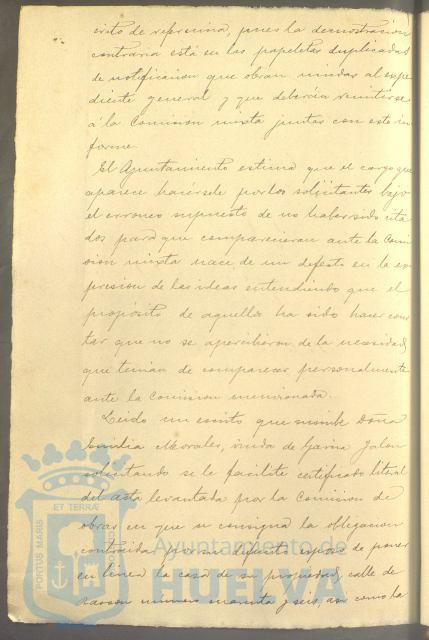 érito de referencia, pues la demostración
contraria está en las papeletas duplicadas
de notificacion que obran unidas al espe
diente general y que deberán remitirse
á la Comision mixta juntas con este in
forme.
El Ayuntamiento estima que el cargo que
aparece hacérsele por los solicitantes bajo
el erroneo supuesto de no haber sido cita
dos para que comparecieran ante la Comi
sion mixta nace de un defecto en la es
presion de las ideas entendiendo que el
propósito de aquellos ha sido hacer cons
tar que no se apercibieron de la necesidad
que tenian de comparecer personalmente
ante la Comision mencionada.
Leido un escrito que suscribe Doña
Emilia Morales, viuda de Garcia Jalon
solicitando se le facilite certificado literal
del acta levantada por la Comision de
obras en que se consigna la obligacion
contraida por su difunto esposo de poner
en linea la casa de su propiedad, calle de
numero y seis, asi como la
PORTUS MARIS
ET TERRAE
Ayuntamiento de
HUELVA